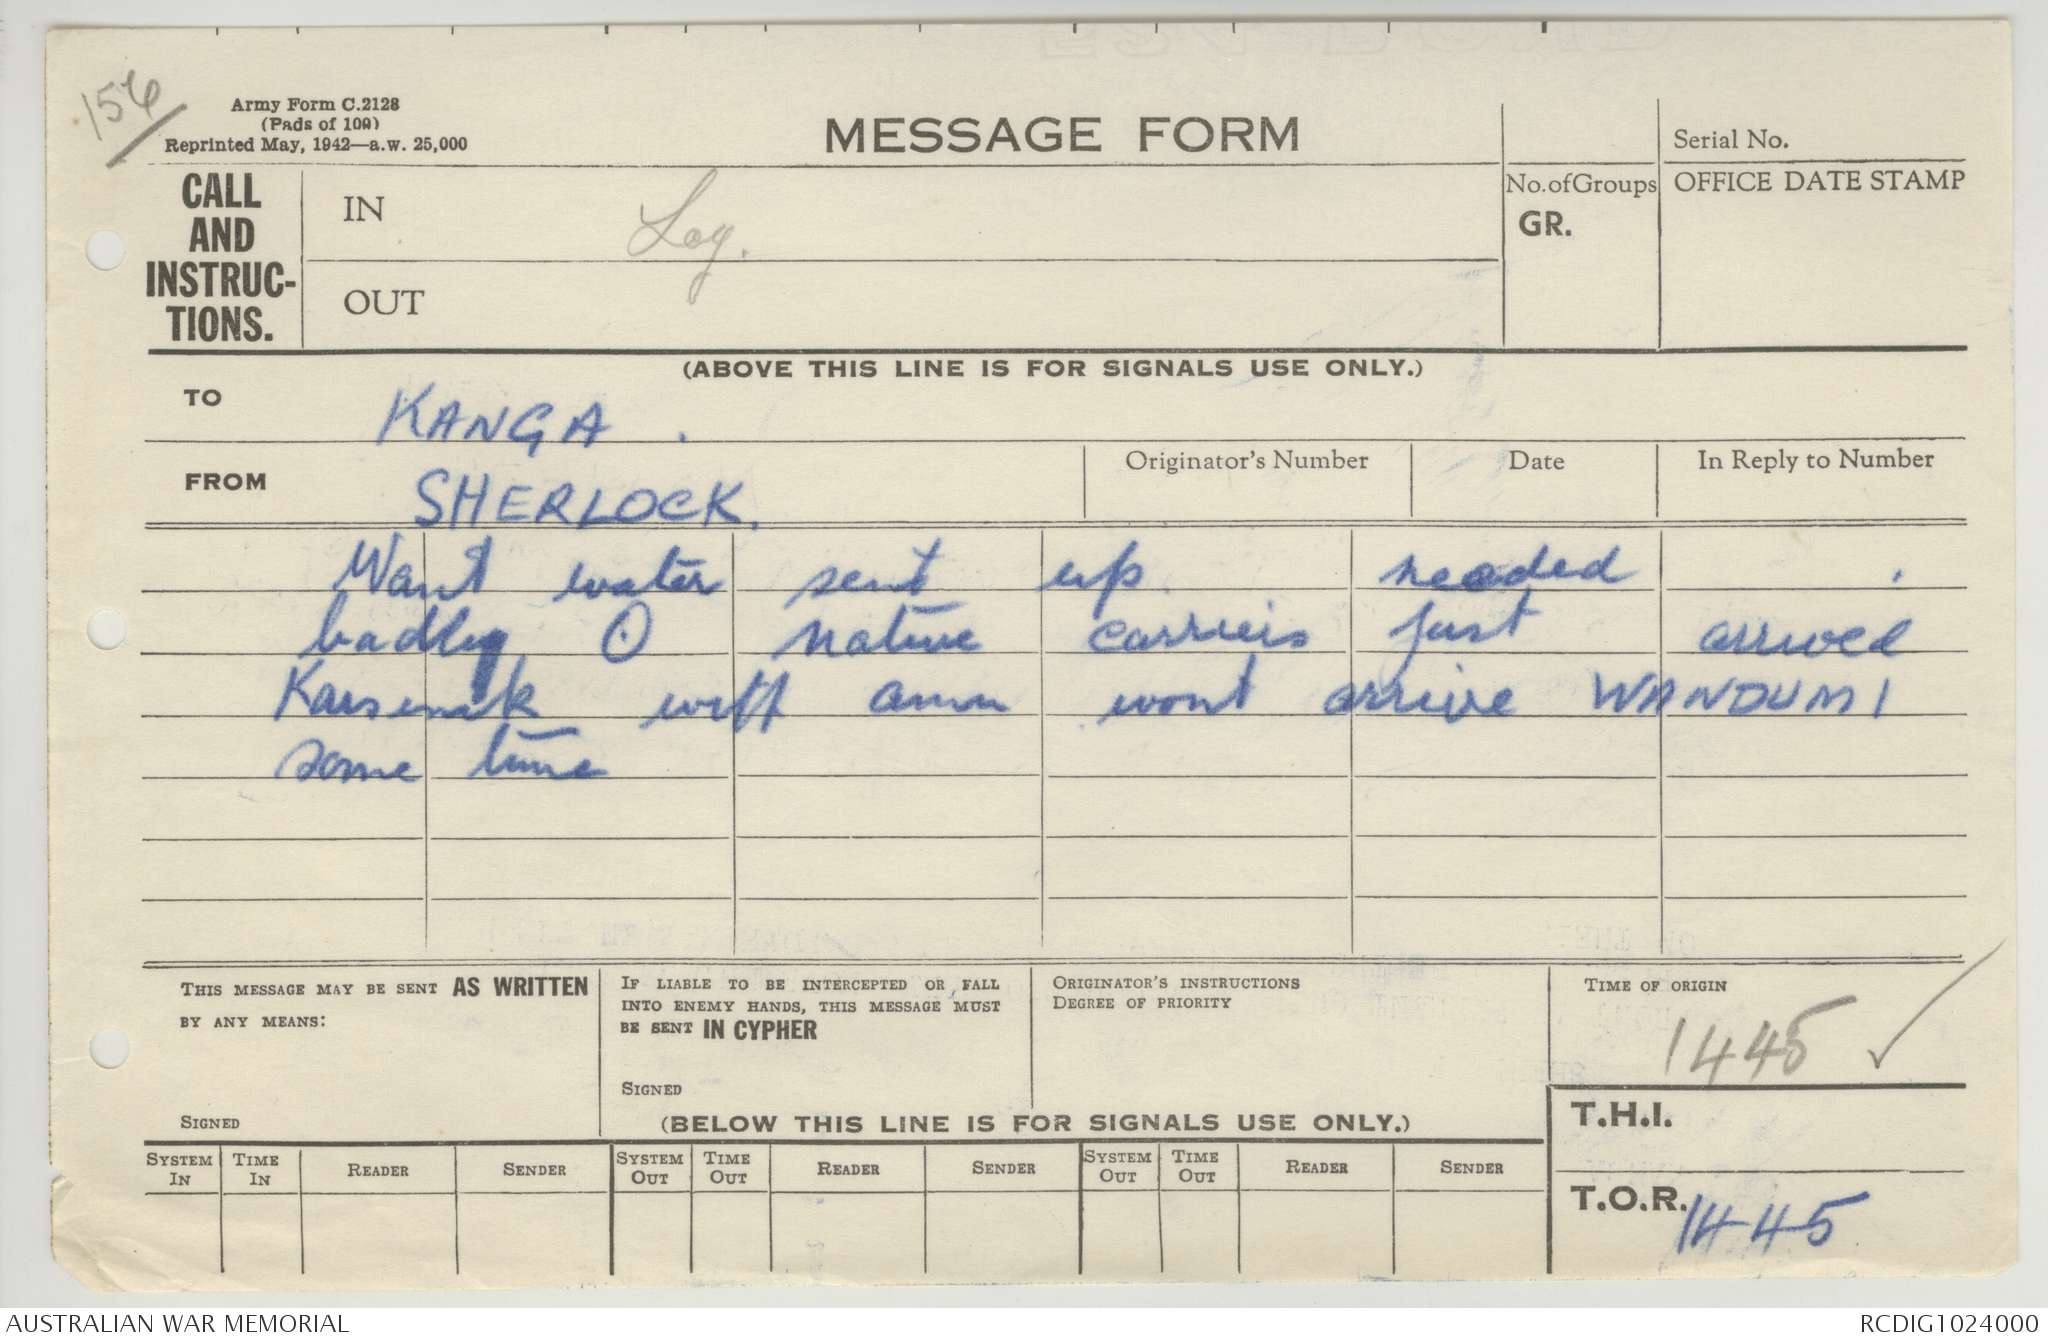 156
Army Form C.2128
(Pads of 100)
Reprinted May, 1942—a.w. 25,000
MESSAGE FORM
Serial No.
CALL
AND
INSTRUC-
TIONS.
IN
Log.
OUT
No. of Groups
GR.
OFFICE DATE STAMP
(ABOVE THIS LINE IS FOR SIGNALS USE ONLY.)
TO
KANGA.
FROM
SHERLOCK.
Originator's Number
Date
In Reply to Number
Want water sent up needed .
badly O native carriers just arrived
with amn wont arrive WANDUMI
some time
THIS MESSAGE MAY BE SENT AS WRITTEN
BY ANY MEANS:
SIGNED
IF LIABLE TO BE INTERCEPTED OR FALL
INTO ENEMY HANDS, THIS MESSAGE MUST
BE SENT IN CYPHER
SIGNED
ORIGINATOR'S INSTRUCTIONS
DEGREE OF PRIORITY
TIME OF ORIGIN
1445 ✓
(BELOW THIS LINE IS FOR SIGNALS USE ONLY.)
T.H.I.
SYSTEM IN
TIME IN
READER
SENDER
SYSTEM OUT
TIME OUT
READER
SENDER
SYSTEM OUT
TIME OUT
READER
SENDER
T.O.R. 1445
AUSTRALIAN WAR MEMORIAL
RCDIG1024000